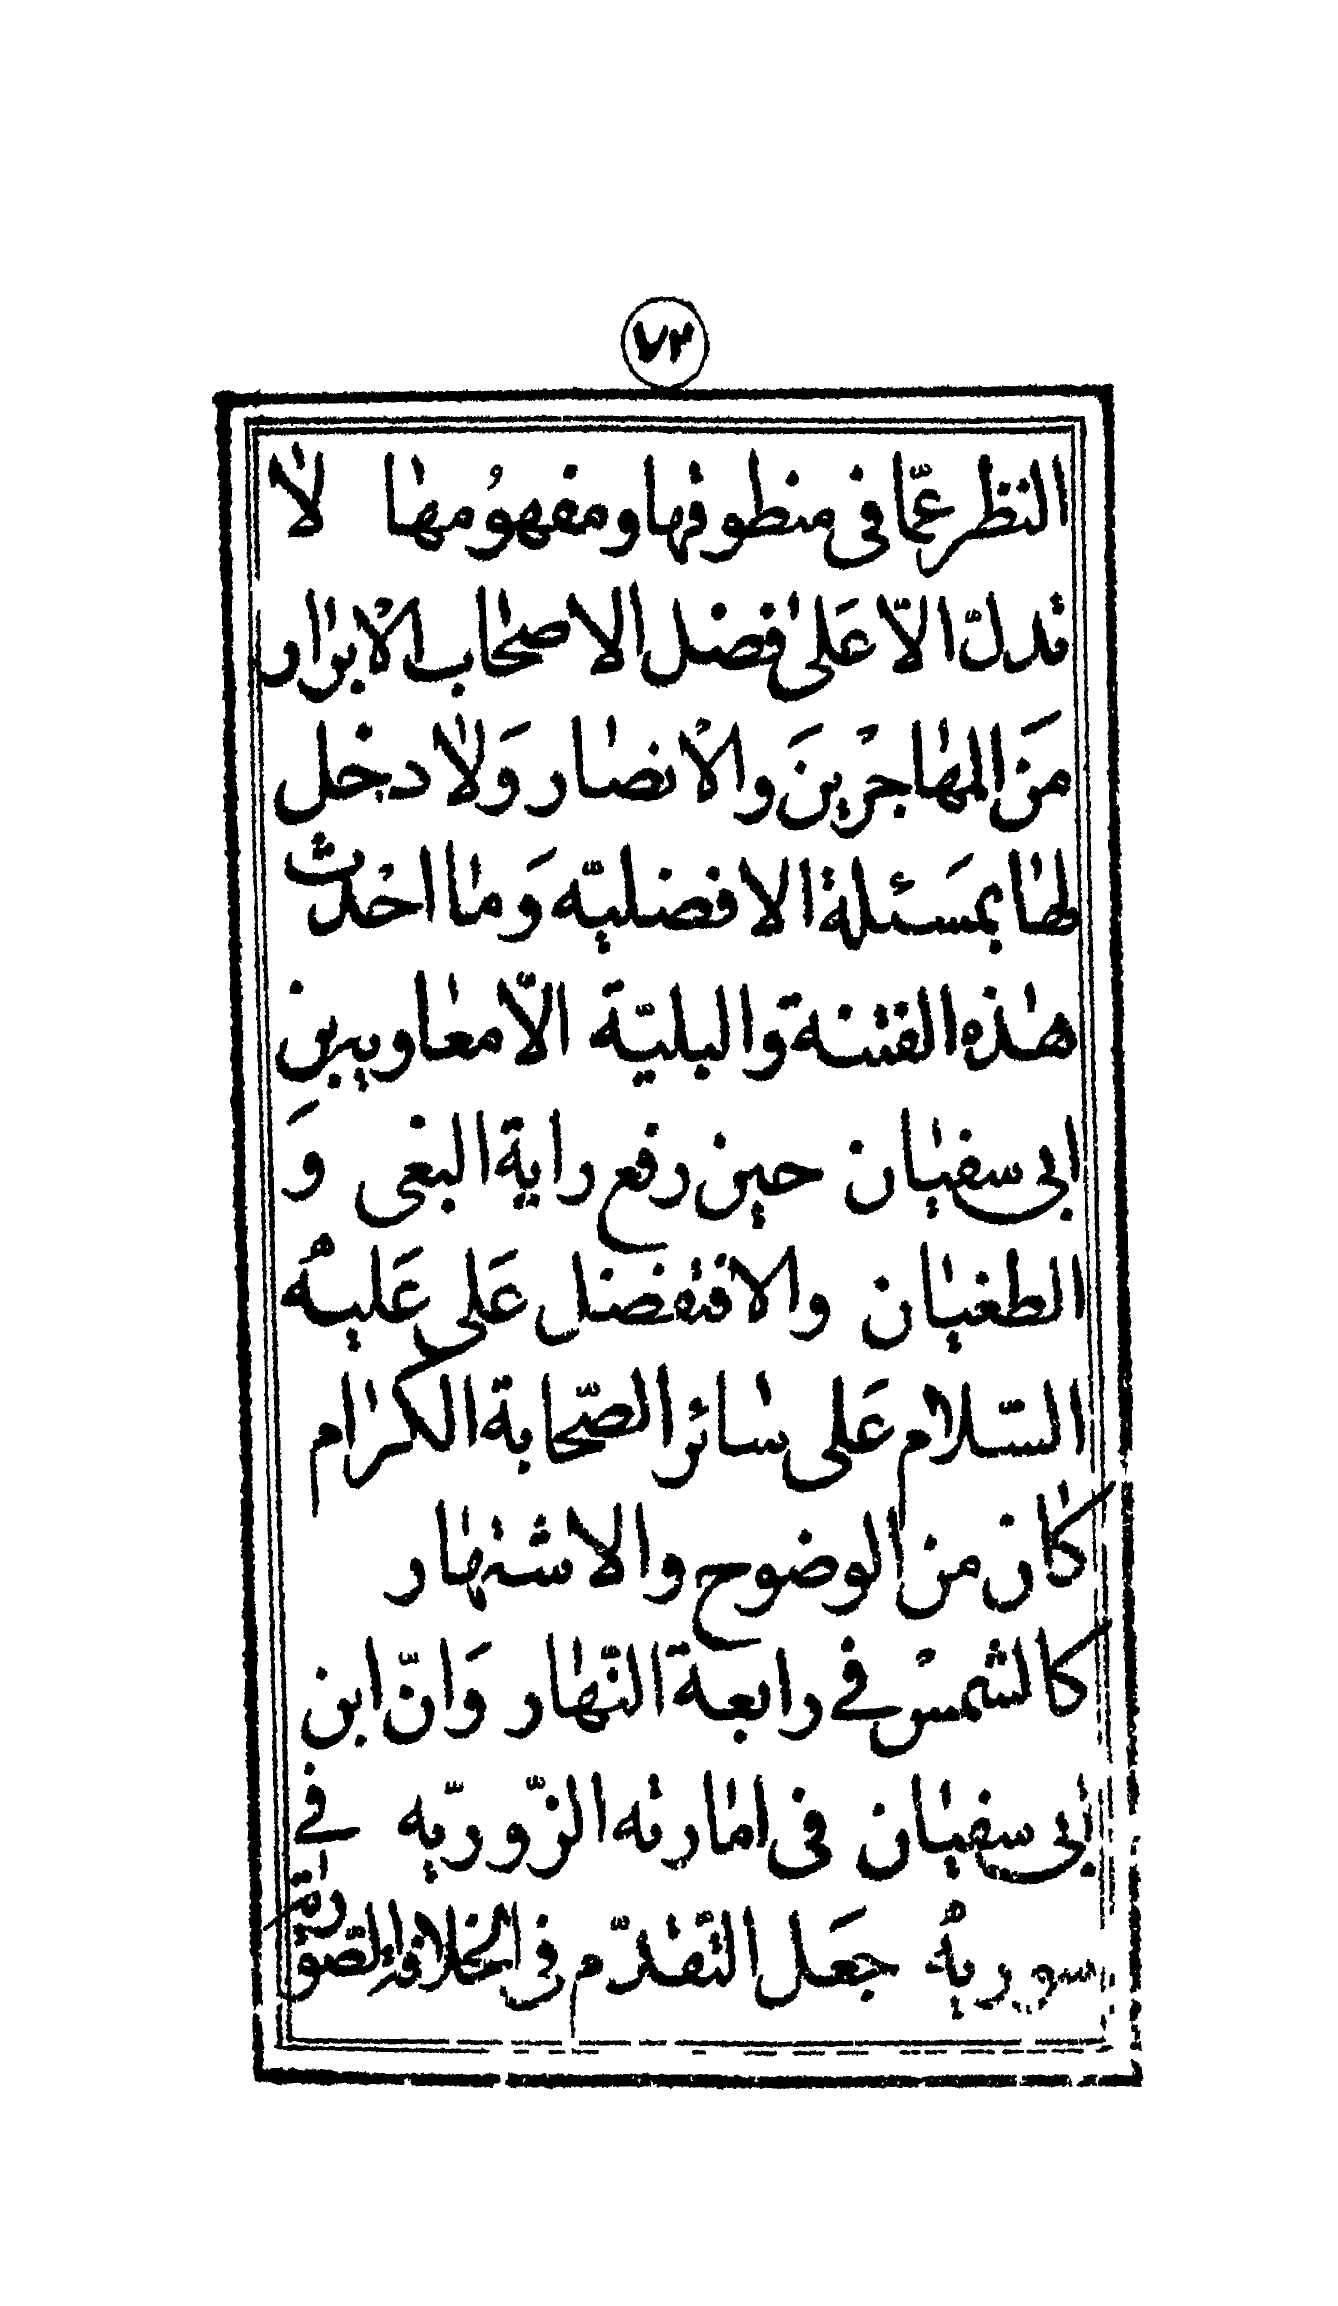 ٧٢
النظر عمّا فى منطوقها ومفهومها لا
تدلّ الّا عَلى فضل الاصحاب الابرار
منَ المهاجرْينَ والانصار وَلا دخل
لها بمسَئلة الافضليّه وَما احْدث
هذه الفتنة والبليّة الّا معاوية بن
ابى سفيان حين رفع راية البغى وَ
الطغيان والافتضل عَلى عَليهُ
السّلام عَلى سائر الصّحابة الكرام
كان من الوضوح والاشتهار
كالشمسْ فے رابعة النّهار وَانّ ابن
أبى سفيان فى امارته الزّوريّه فے
سوريهُ جعَل التّقدّم فى الخلافة الصّورة